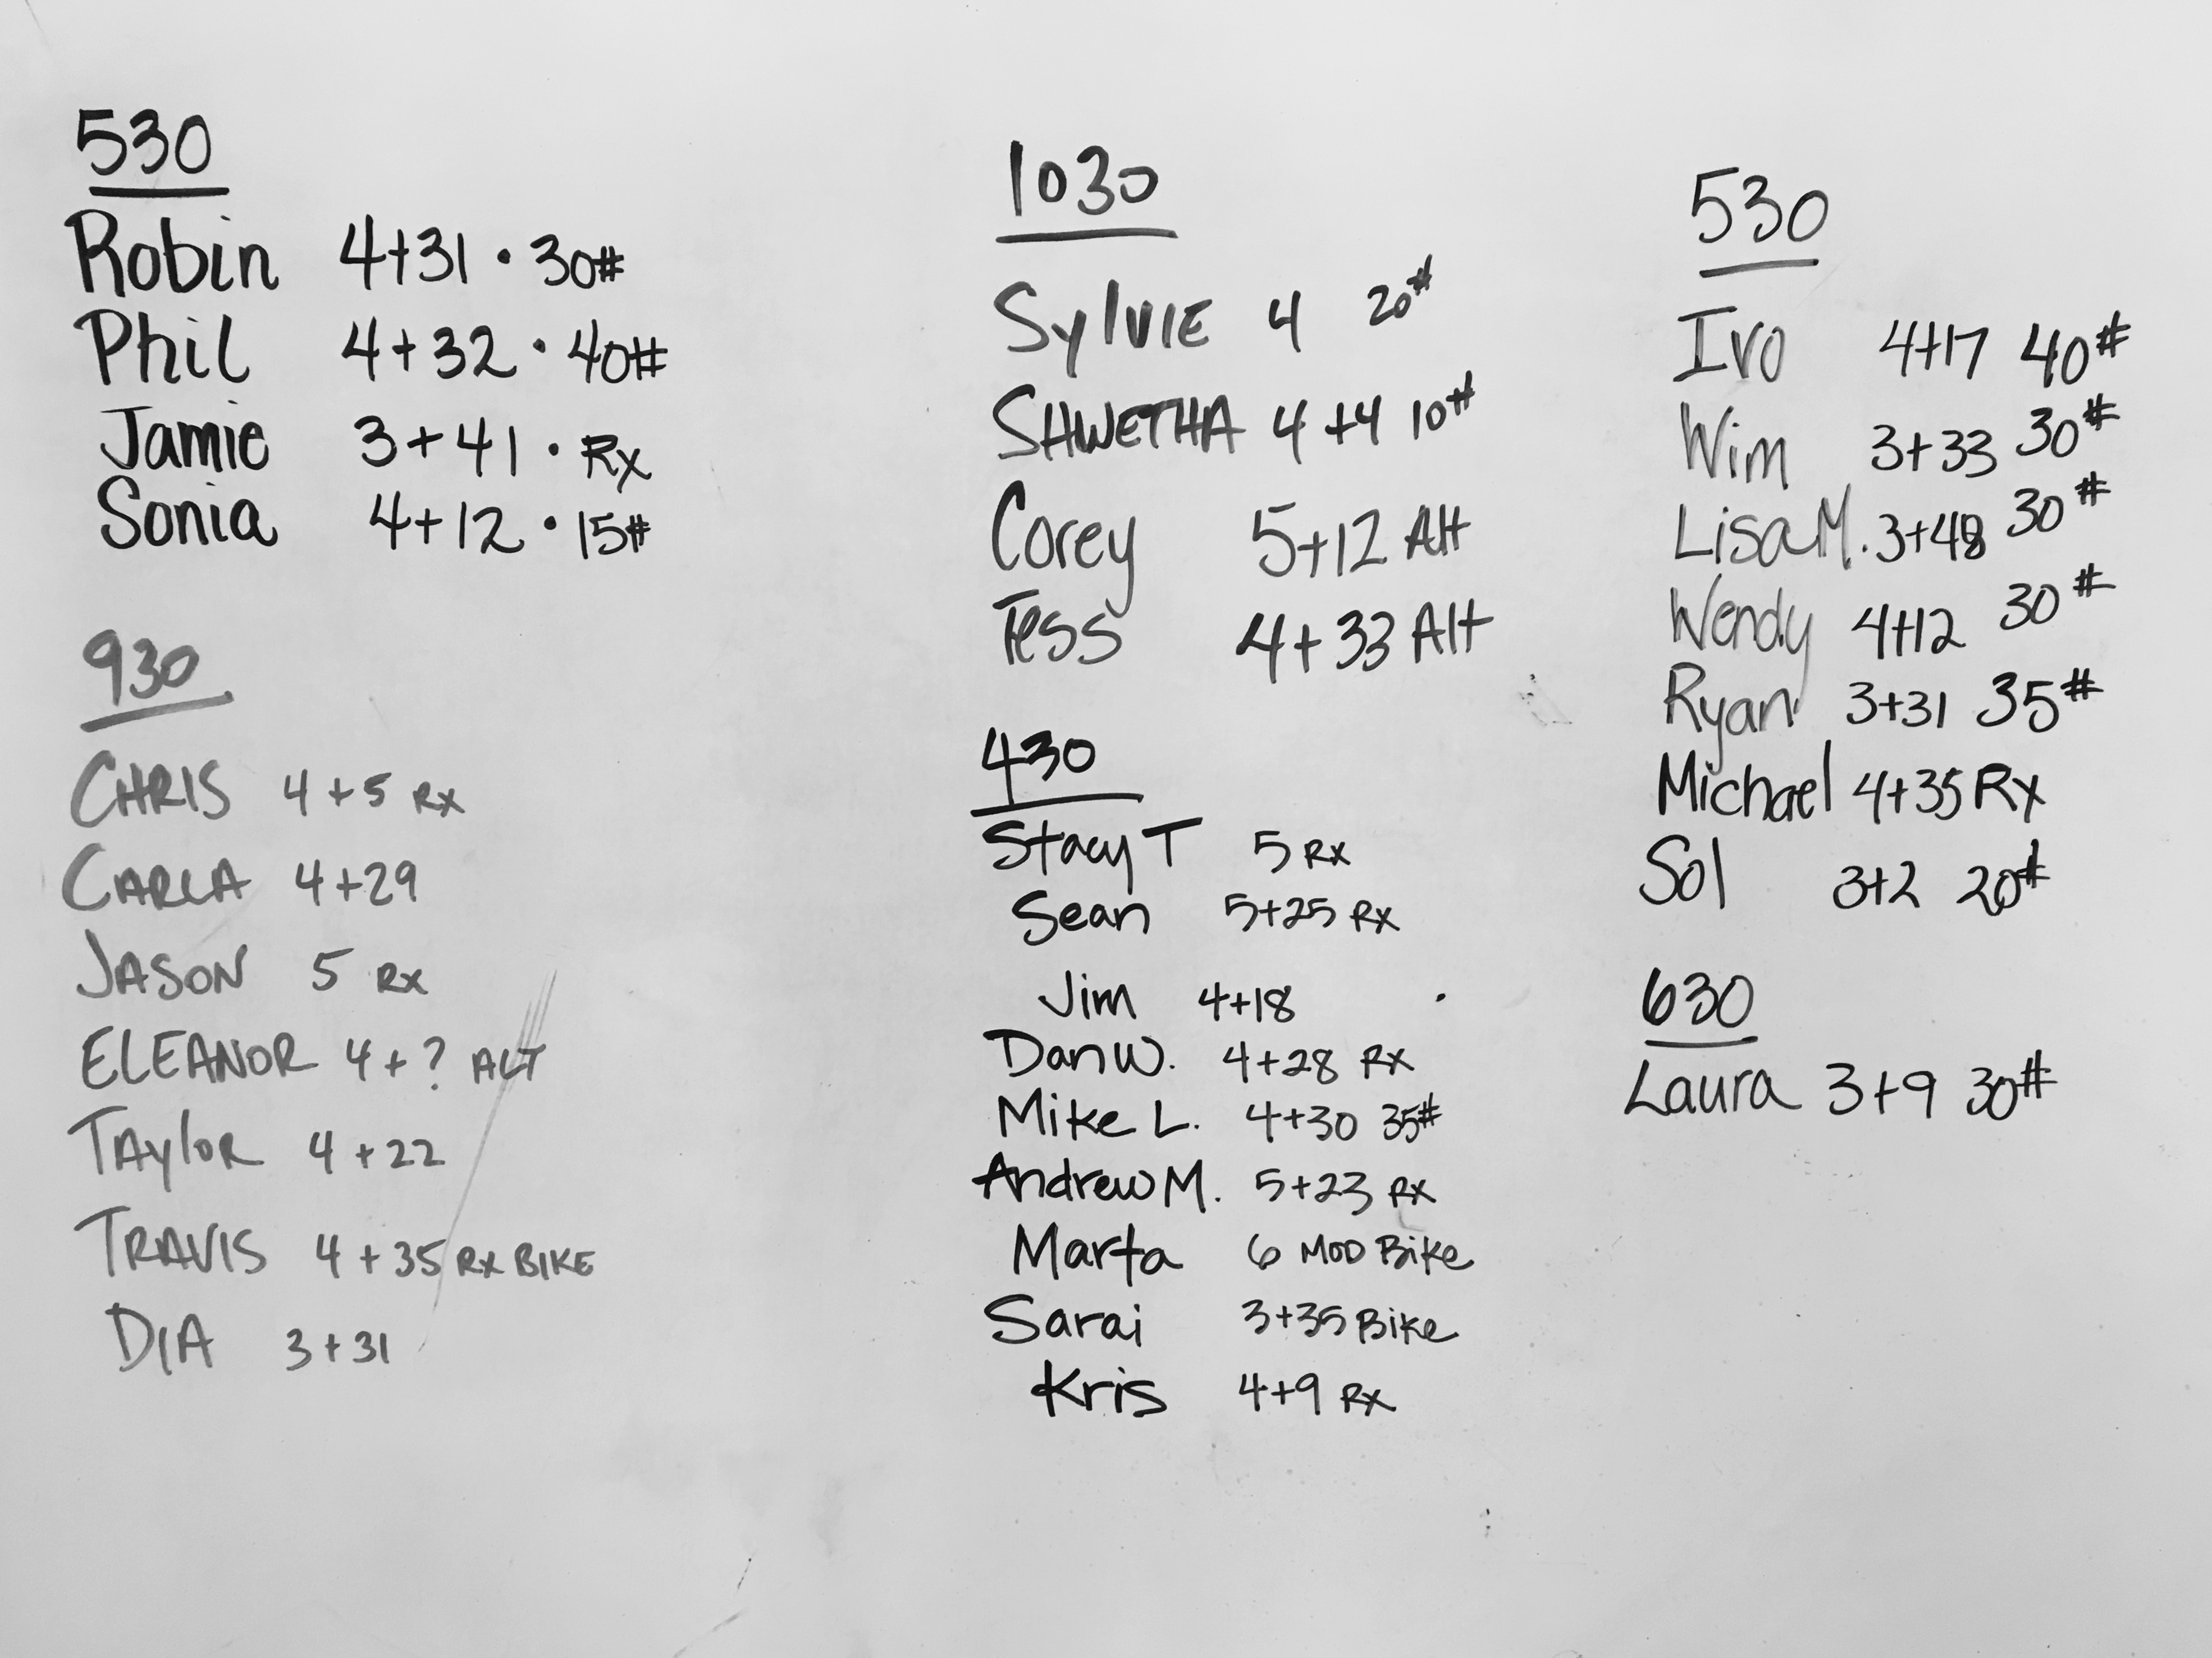 530
Robin 4+31 • 30#
Phil 4+32 • 40#
Jamie 3+41 • Rx
Sonia 4+12 • 15#
930
CHRIS 4+5 RX
CARLA 4+29
JASON 5 RX
ELEANOR 4+? ALT
TAylOR 4+22
TRAVIS 4+35 RX BIKE
DIA 3+31
1030
SylVIE 4 20#
SHWETHA 4+4 10#
Corey 5+12 Alt
Tess 4+33 Alt
430
Stacy T 5 RX
Sean 5+25 RX
Jim 4+18
Dan W. 4+28 RX
Mike L. 4+30 35#
Andrew M. 5+23 RX
Marta 6 MOD Bike
Sarai 3+35 Bike
Kris 4+9 RX
530
Ivo 4+17 40#
Wim 3+33 30#
Lisa M. 3+48 30#
Wendy 4+12 30#
Ryan 3+31 35#
Michael 4+35 Rx
Sol 3+2 20#
630
Laura 3+9 30#